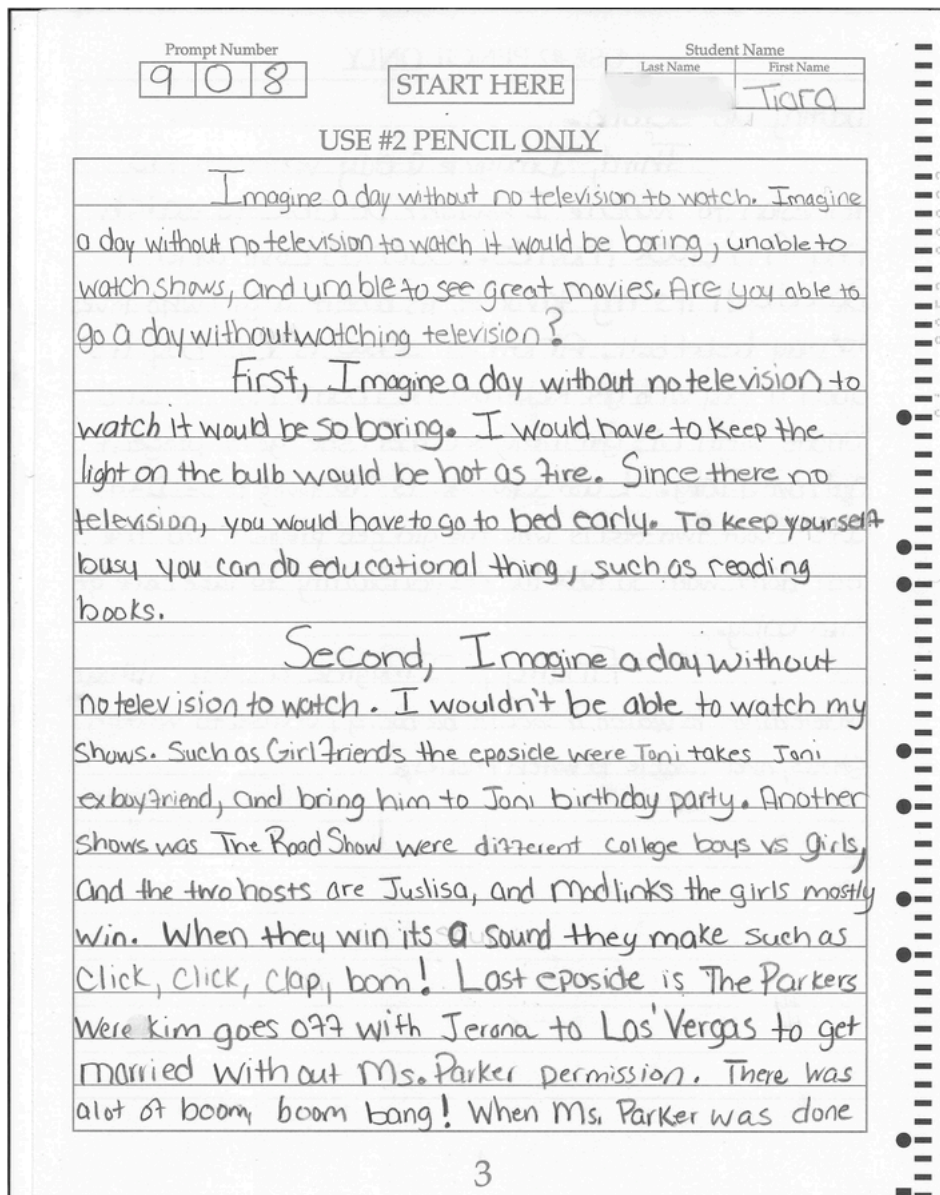 Prompt Number
908
START HERE
Student Name
Last Name
First Name
Tiara
USE #2 PENCIL ONLY
Imagine a day without no television to watch. Imagine
a day without no television to watch it would be boring, unable to
watch shows, and unable to see great movies. Are you able to
go a day without watching television?
First, Imagine a day without no television to
watch it would be so boring. I would have to keep the
light on the bulb would be hot as fire. Since there no
television, you would have to go to bed early. To keep yourself
busy you can do educational thing, such as reading
books.
Second, Imagine a day without
no television to watch. I wouldn't be able to watch my
shows. Such as Girlfriends the eposicle were Toni takes Joni
exboyfriend, and bring him to Joni birthday party. Another
shows was The Road Show were different college boys vs girls,
and the two hosts are Juslisa, and madlinks the girls mostly
win. When they win its a sound they make such as
click, click, clap, bom! Last eposide is The Parkers
Were kim goes off with Jerona to Los'Vergas to get
married with out Ms. Parker permission. There was
alot of boom, boom bang! When Ms. Parker was done
3